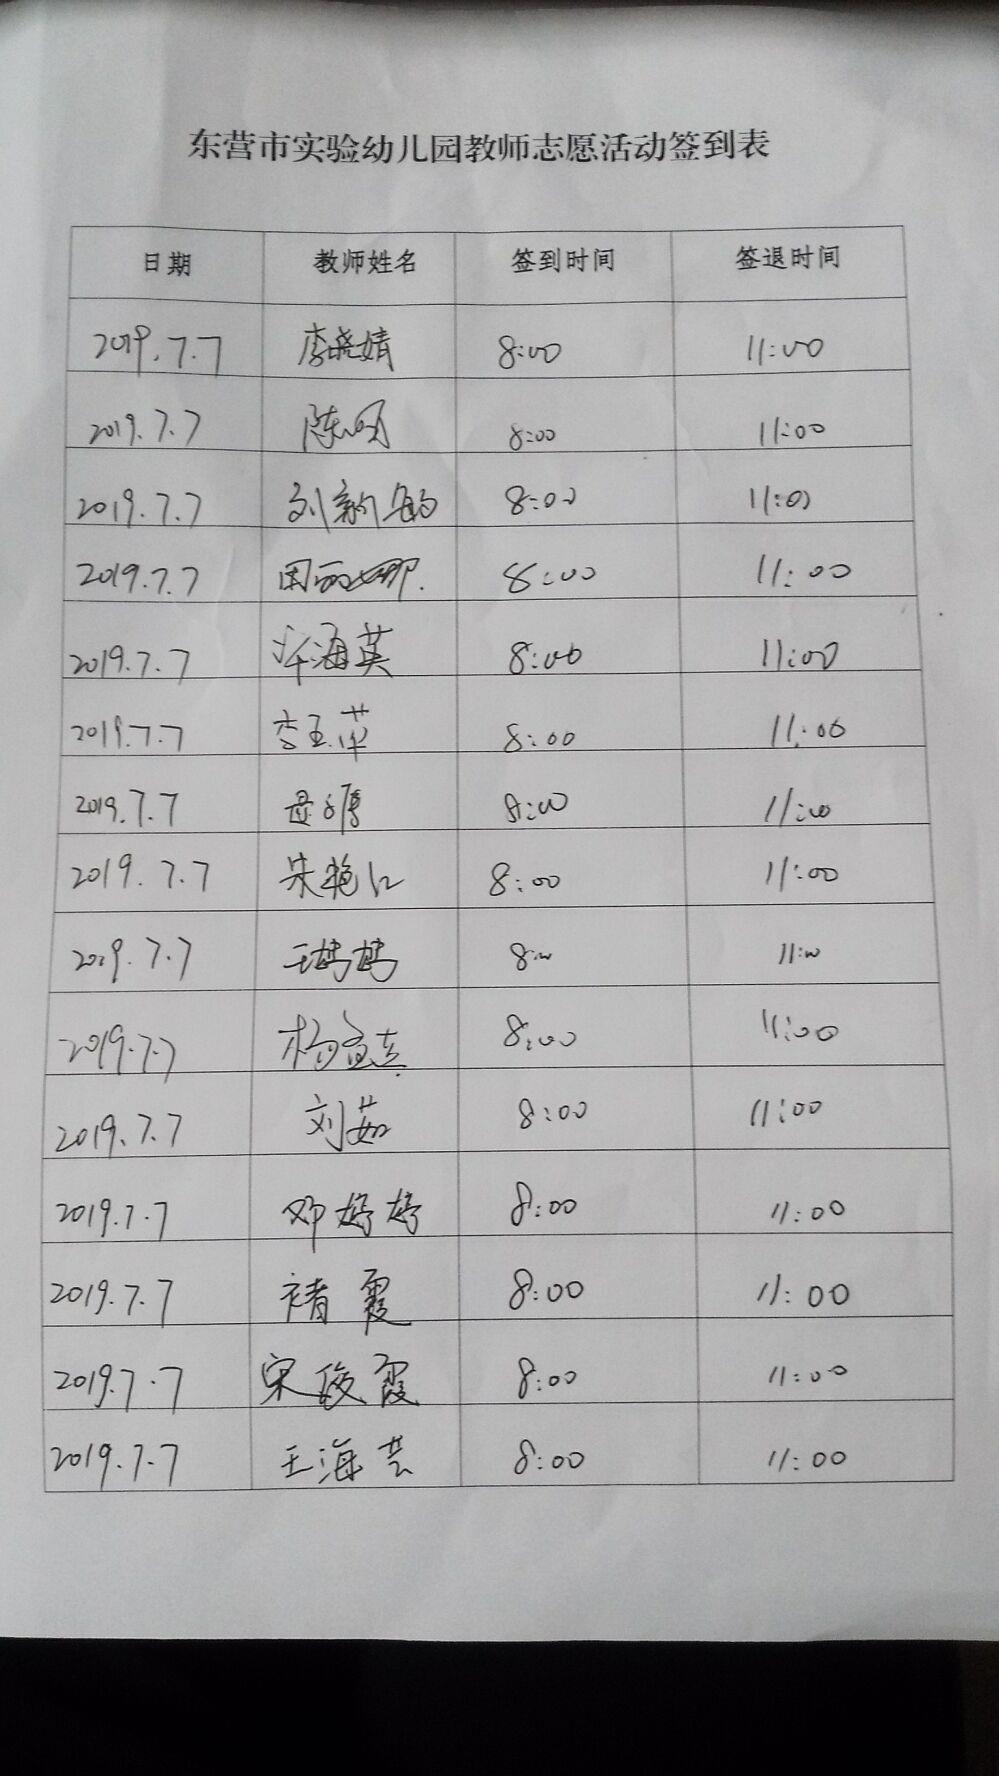 东营市实验幼儿园教师志愿活动签到表
日期 教师姓名 签到时间 签退时间
2019.7.7 李晓婧 8:00 11:00
2019.7.7 陈 8:00 11:00
2019.7.7 刘新 8:00 11:00
2019.7.7 田丽娜. 8:00 11:00
2019.7.7 许海英 8:00 11:00
2019.7.7 李玉萍 8:00 11:00
2019.7.7 8:00 11:00
2019.7.7 朱艳红 8:00 11:00
2019.7.7 王 8:00 11:00
2019.7.7 杨 8:00 11:00
2019.7.7 刘茹 8:00 11:00
2019.7.7 邓婷婷 8:00 11:00
2019.7.7 褚霞 8:00 11:00
2019.7.7 宋俊霞 8:00 11:00
2019.7.7 王海芸 8:00 11:00